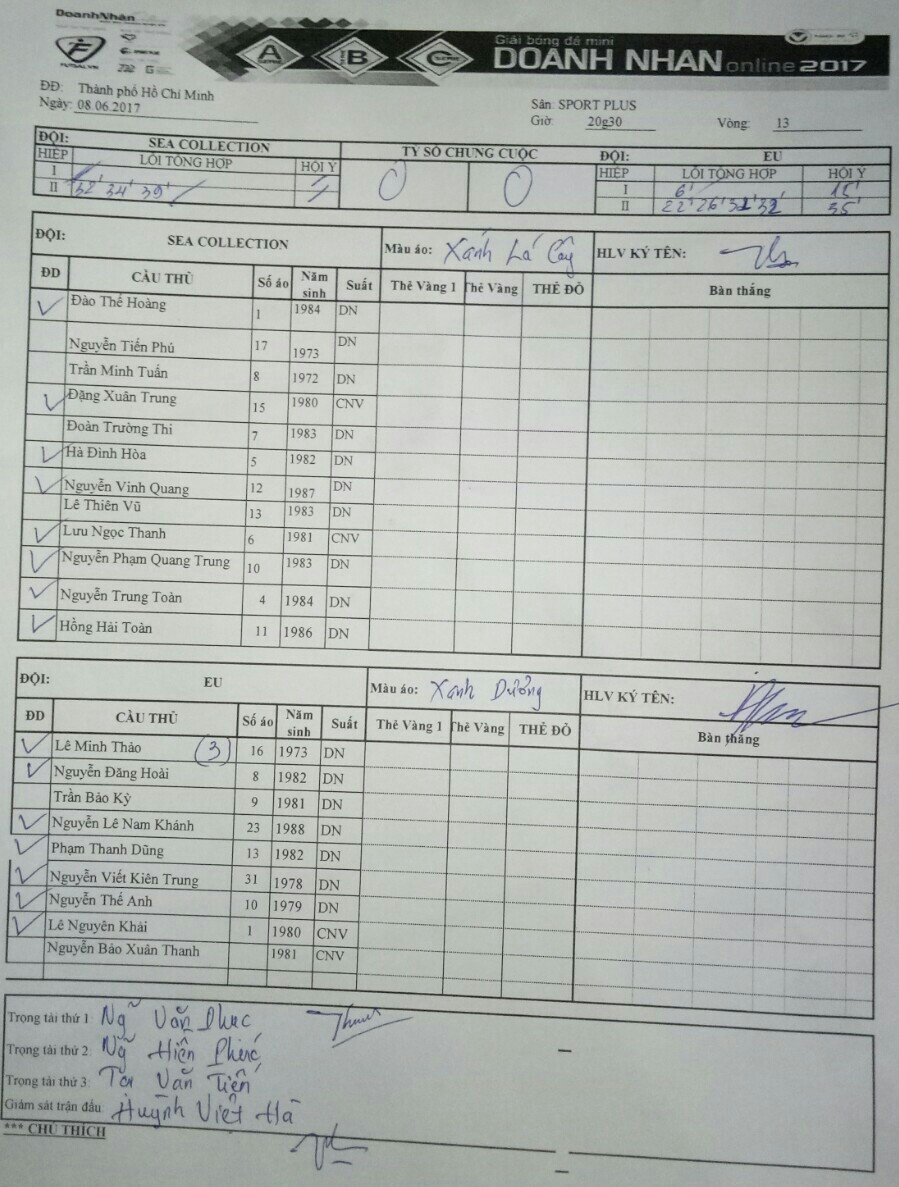 DoanhNhân
FUTSAL.VN
A SERIE B SERIE C SERIE
Giải bóng đá mini
DOANH NHAN online 2017
ĐĐ: Thành phố Hồ Chí Minh
Ngày: 08.06.2017
Sân: SPORT PLUS
Giờ: 20g30 Vòng: 13
ĐỘI: SEA COLLECTION TỶ SỐ CHUNG CUỘC ĐỘI: EU
HIỆP LỖI TỔNG HỢP HỘI Ý 0 0 HIỆP LỖI TỔNG HỢP HỘI Ý
I I 6' 15'
II 32' 34' 39' II 22' 26' 32' 35'
ĐỘI: SEA COLLECTION Màu áo: Xanh Lá Cây HLV KÝ TÊN:
ĐD CẦU THỦ Số áo Năm sinh Suất Thẻ Vàng 1 Thẻ Vàng THẺ ĐỎ Bàn thắng
✓ Đào Thế Hoàng 1 1984 DN
Nguyễn Tiến Phú 17 1973 DN
Trần Minh Tuấn 8 1972 DN
✓ Đặng Xuân Trung 15 1980 CNV
Đoàn Trường Thi 7 1983 DN
✓ Hà Đình Hòa 5 1982 DN
✓ Nguyễn Vinh Quang 12 1987 DN
Lê Thiên Vũ 13 1983 DN
✓ Lưu Ngọc Thanh 6 1981 CNV
✓ Nguyễn Phạm Quang Trung 10 1983 DN
✓ Nguyễn Trung Toàn 4 1984 DN
✓ Hồng Hải Toàn 11 1986 DN
ĐỘI: EU Màu áo: Xanh Dương HLV KÝ TÊN:
ĐD CẦU THỦ Số áo Năm sinh Suất Thẻ Vàng 1 Thẻ Vàng THẺ ĐỎ Bàn thắng
✓ Lê Minh Thảo (3) 16 1973 DN
✓ Nguyễn Đăng Hoài 8 1982 DN
Trần Bảo Kỳ 9 1981 DN
✓ Nguyễn Lê Nam Khánh 23 1988 DN
✓ Phạm Thanh Dũng 13 1982 DN
✓ Nguyễn Viết Kiên Trung 31 1978 DN
✓ Nguyễn Thế Anh 10 1979 DN
✓ Lê Nguyên Khải 1 1980 CNV
Nguyễn Bảo Xuân Thanh 1981 CNV
Trọng tài thứ 1: Ng Văn Phúc
Trọng tài thứ 2: Ng Hiền Phước
Trọng tài thứ 3: Văn Tiến
Giám sát trận đấu: Huỳnh Viết Hà
*** CHÚ THÍCH